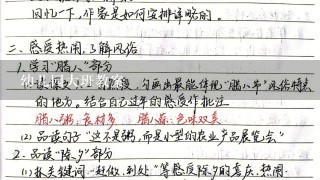 回忆一下,作家是如何安排详略的。
二、感受热闹,了解风俗
1.学习"腊八"部分
幼儿园大班教案
勾画出最能体现"腊八节"风俗特点
的地方。结合自己过年的感受作批注
腊八粥:食材多 腊八蒜:色味双美
(2)品读句子"这不是粥,而是小型的农业产品展览会"
2.品读"除夕"部分
(1)抓关键词"赶做、到处"等感侯除夕的喜庆、热闹